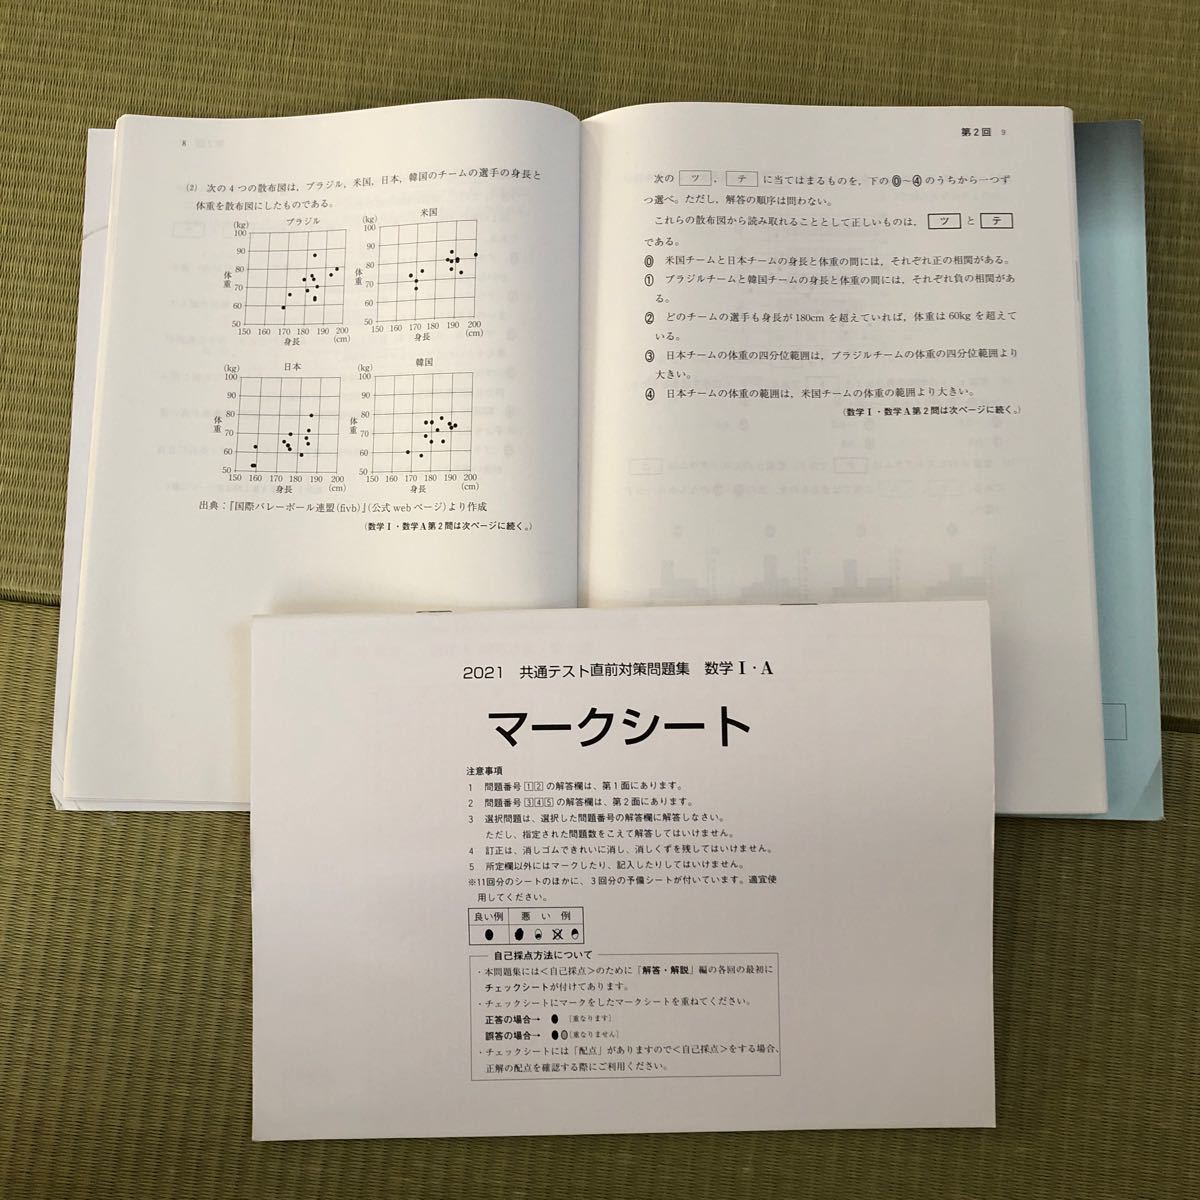 8
(2) 次の4つの散布図は，ブラジル，米国，日本，韓国のチームの選手の身長と
体重を散布図にしたものである。
ブラジル
(kg)
100
90
80
70
60
50
体重
150 160 170 180 190 200
身長 (cm)
米国
(kg)
100
90
80
70
60
50
体重
150 160 170 180 190 200
身長 (cm)
日本
(kg)
100
90
80
70
60
50
体重
150 160 170 180 190 200
身長 (cm)
韓国
(kg)
100
90
80
70
60
50
体重
150 160 170 180 190 200
身長 (cm)
出典：『国際バレーボール連盟(fivb)』(公式webページ)より作成
(数学Ⅰ・数学A第2問は次ページに続く。)
第2回 9
次の ツ ， テ に当てはまるものを，下の⓪～④のうちから一つず
つ選べ。ただし，解答の順序は問わない。
これらの散布図から読み取れることとして正しいものは， ツ と テ
である。
⓪ 米国チームと日本チームの身長と体重の間には，それぞれ正の相関がある。
① ブラジルチームと韓国チームの身長と体重の間には，それぞれ負の相関があ
る。
② どのチームの選手も身長が180cmを超えていれば，体重は60kgを超えて
いる。
③ 日本チームの体重の四分位範囲は，ブラジルチームの体重の四分位範囲より
大きい。
④ 日本チームの体重の範囲は，米国チームの体重の範囲より大きい。
(数学Ⅰ・数学A第2問は次ページに続く。)
2021 共通テスト直前対策問題集 数学Ⅰ・A
マークシート
注意事項
1 問題番号12の解答欄は、第1面にあります。
2 問題番号345の解答欄は、第2面にあります。
3 選択問題は、選択した問題番号の解答欄に解答しなさい。
ただし、指定された問題数をこえて解答してはいけません。
4 訂正は、消しゴムできれいに消し、消しくずを残してはいけません。
5 所定欄以外にはマークしたり、記入したりしてはいけません。
※11回分のシートのほかに、3回分の予備シートが付いています。適宜使
用してください。
良い例 悪い例
自己採点方法について
・本問題集には＜自己採点＞のために「解答・解説」編の各回の最初に
チェックシートが付けてあります。
・チェックシートにマークをしたマークシートを重ねてください。
正答の場合→ [重なります]
誤答の場合→ [重なりません]
・チェックシートには「配点」がありますので＜自己採点＞をする場合、
正解の配点を確認する際にご利用ください。